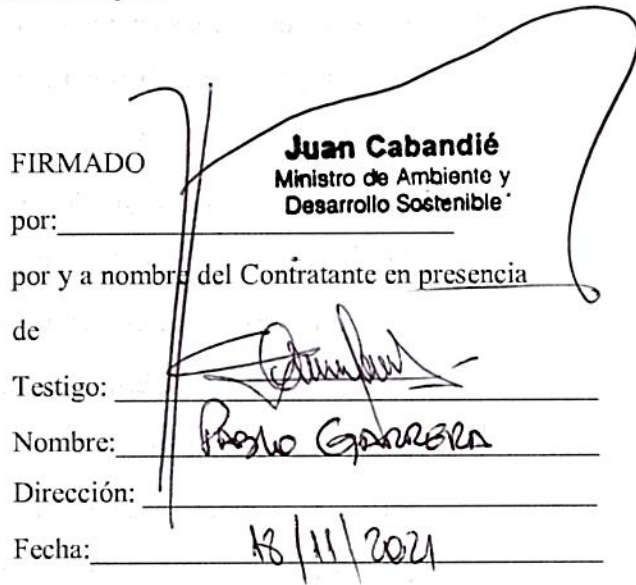 FIRMADO
Juan Cabandié
Ministro de Ambiente y
Desarrollo Sostenible
por:
por y a nombre del Contratante en presencia
de
Testigo:
Nombre: PABLO GARRERA
Dirección:
Fecha: 18/11/2021